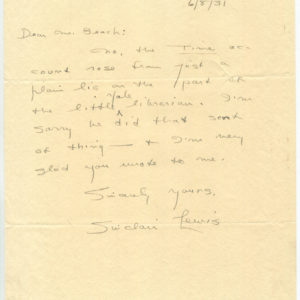 6/8/31
Dear Mr. Beach:
No, the Time ac-
count rose from just a
plain lie on the part of
the little Yale librarian. I'm
sorry he did that sort
of thing — & I'm very
glad you wrote to me.
Sincerely yours,
Sinclair Lewis